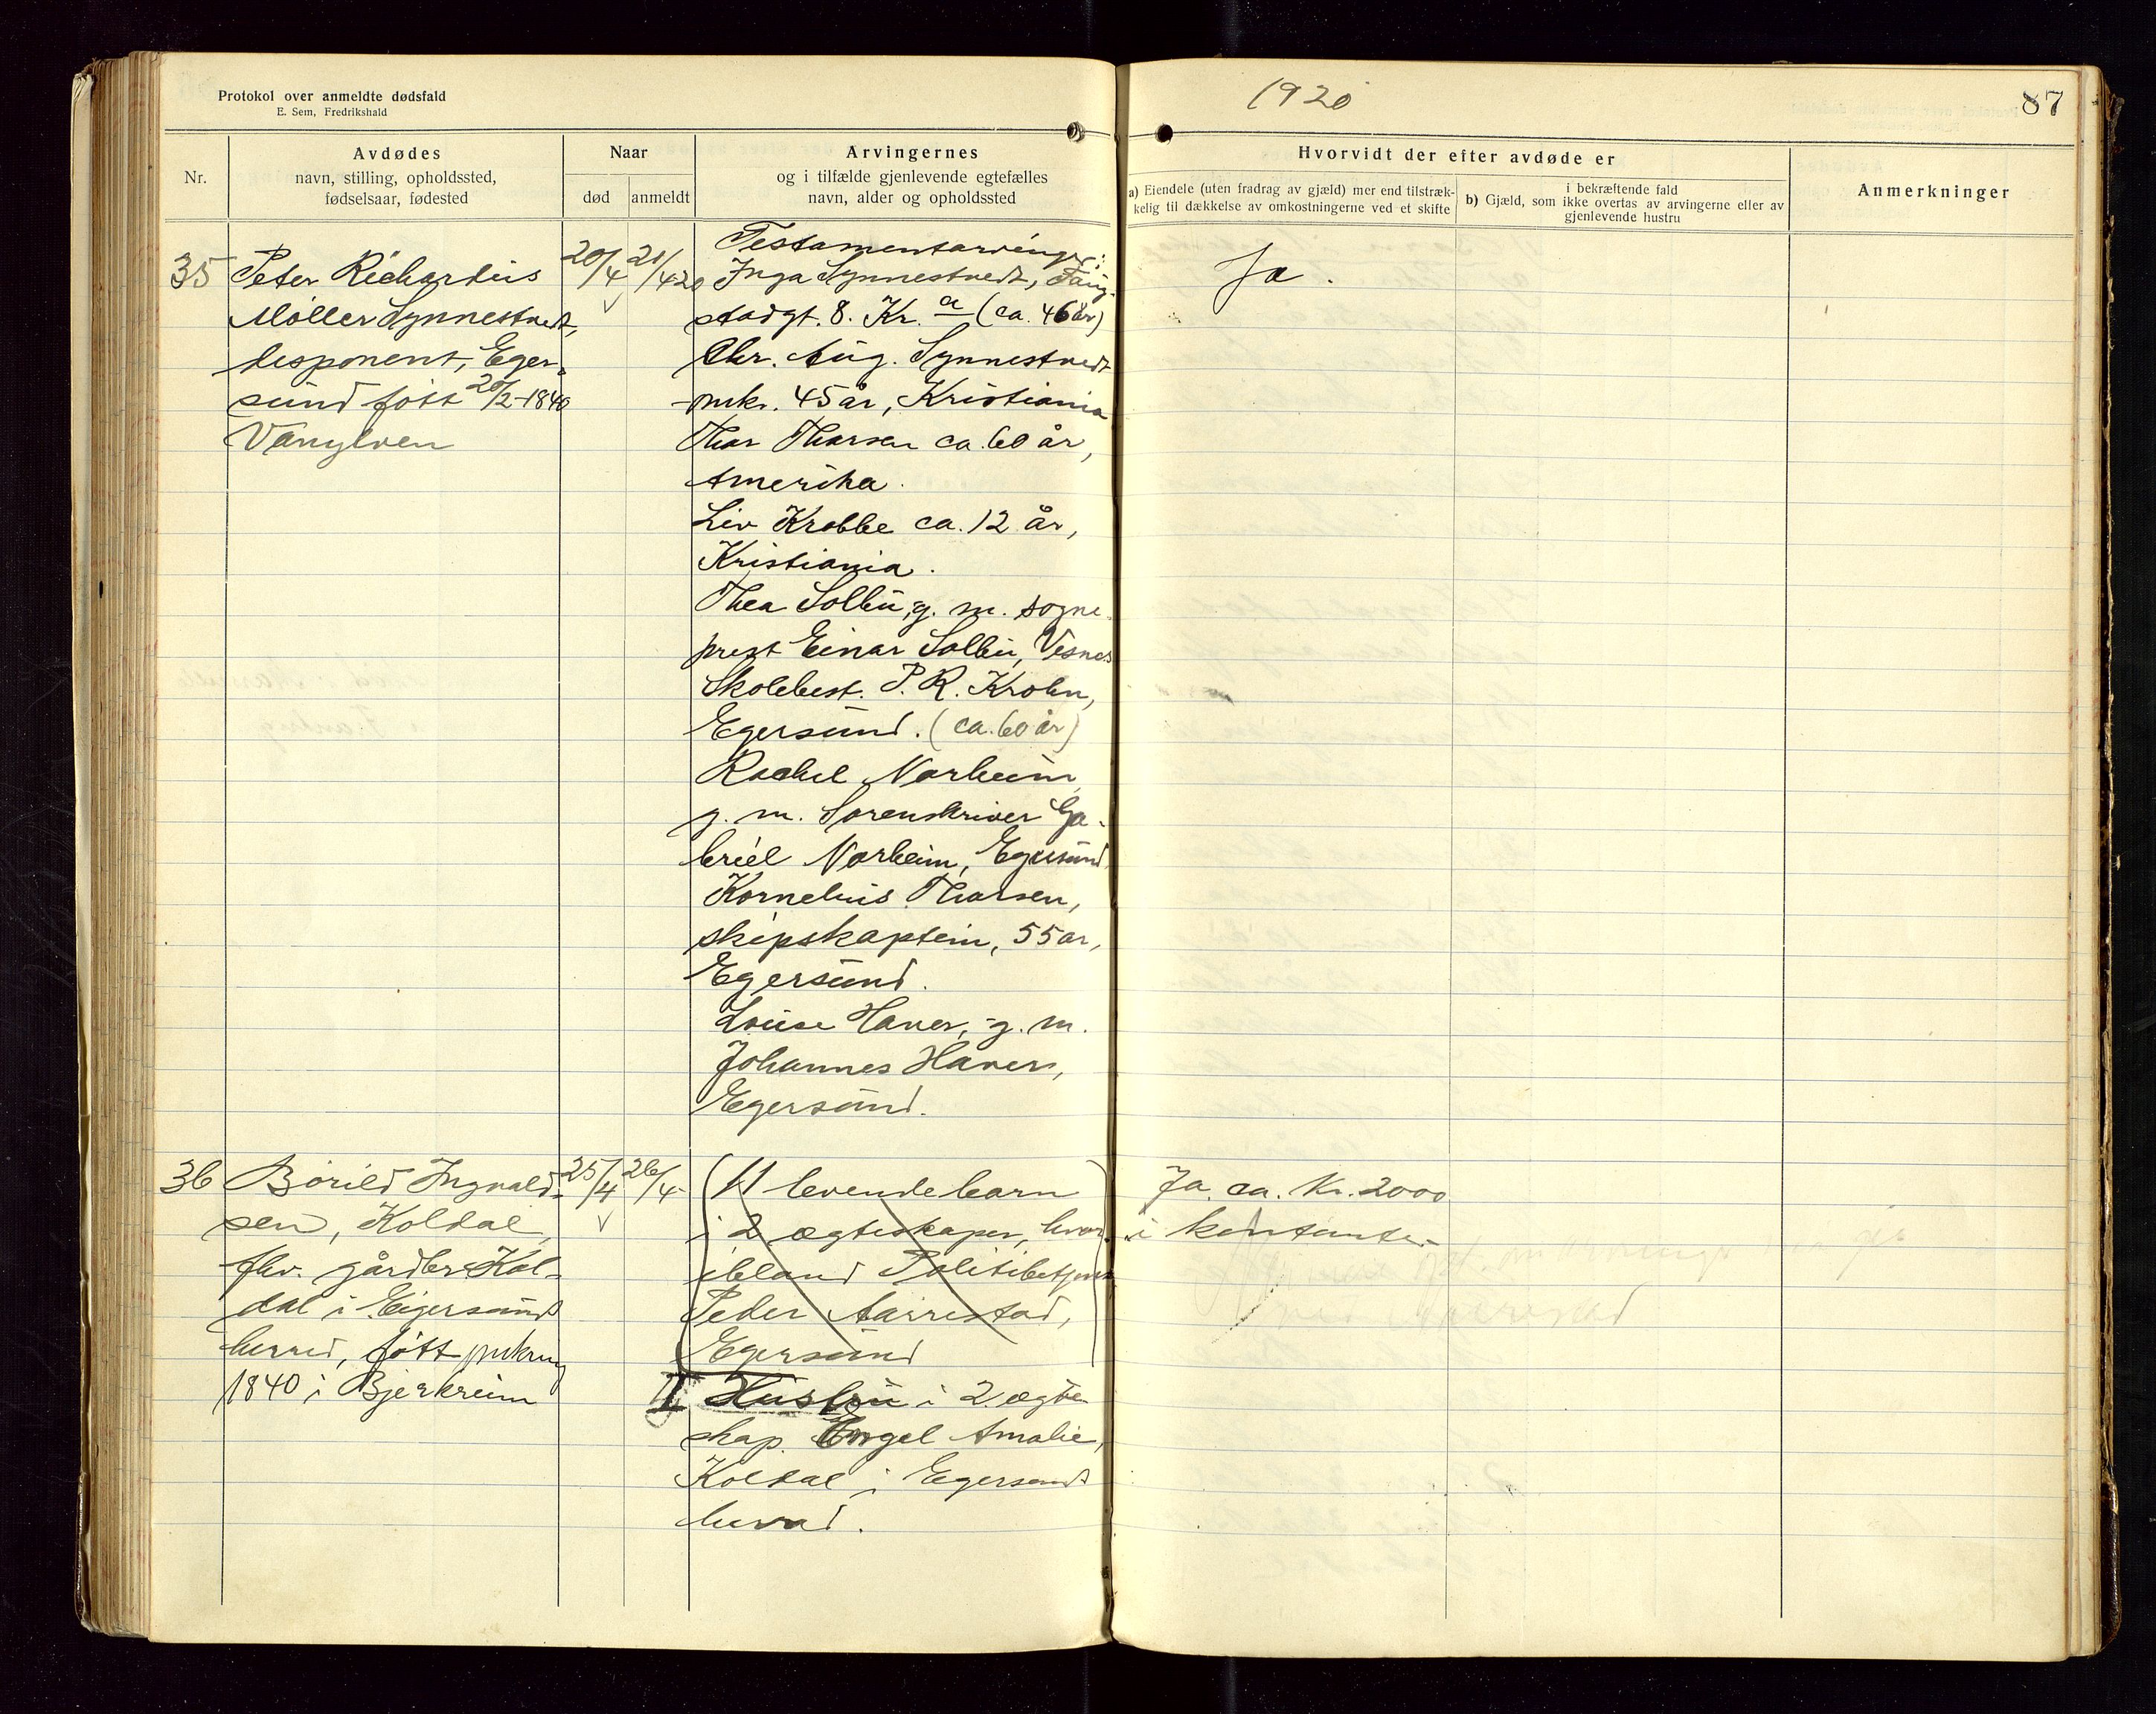 Protokol over anmeldte dødsfald
E. Sem, Fredrikshald
1920
87
Nr.
Avdødes
navn, stilling, opholdssted,
fødselsaar, fødested
Naar
død
anmeldt
Arvingernes
og i tilfælde gjenlevende egtefælles
navn, alder og opholdssted
Hvorvidt der efter avdøde er
a) Eiendele (uten fradrag av gjæld) mer end tilstræk-
kelig til dækkelse av omkostningerne ved et skifte
i bekræftende fald
b) Gjæld, som ikke overtas av arvingerne eller av
gjenlevende hustru
Anmerkninger
35
Peter Richardus
Møller Synnestvedt,
disponent, Eger-
sund født 20/2-1840
Vanylven
20/4
21/4 20
Testamentarvinger:
Inga Synnestvedt, Tung-
stadgt. 8. Kr.a (ca. 46 år)
Chr. Aug. Synnestvedt
45 år, Kristiania
Thor Thorsen ca. 60 år,
Amerika.
Liv Krobbe ca. 12 år,
Kristiania.
Thea Solbu, g. m. sogne-
prest Einar Solbu, Vesnes
Skolebest. P. R. Krohn,
Egersund. (ca. 60 år)
Rachel Norheim
g. m. Sorenskriver Ga-
briel Norheim, Egersund
Kornelius Thorsen,
skipskaptein, 55 år,
Egersund.
Louise Haver, g. m.
Johannes Haver,
Egersund.
Ja.
36
Bårild Ingvald-
sen, Koldal,
fhv. gårdbr. Kol-
dal i Eigersund
herred, født
1840 i Bjerkreim
25/4
26/4
(11 levende barn
i 2 ægteskaper, hvor-
iblandt Politibetjent
Peder Aarrestad,
Egersund
Hustru i 2 ægte-
skap. Engel Amalie,
Koldal i Egersund
herred.
Ja. ca. Kr. 2000
i kontanter